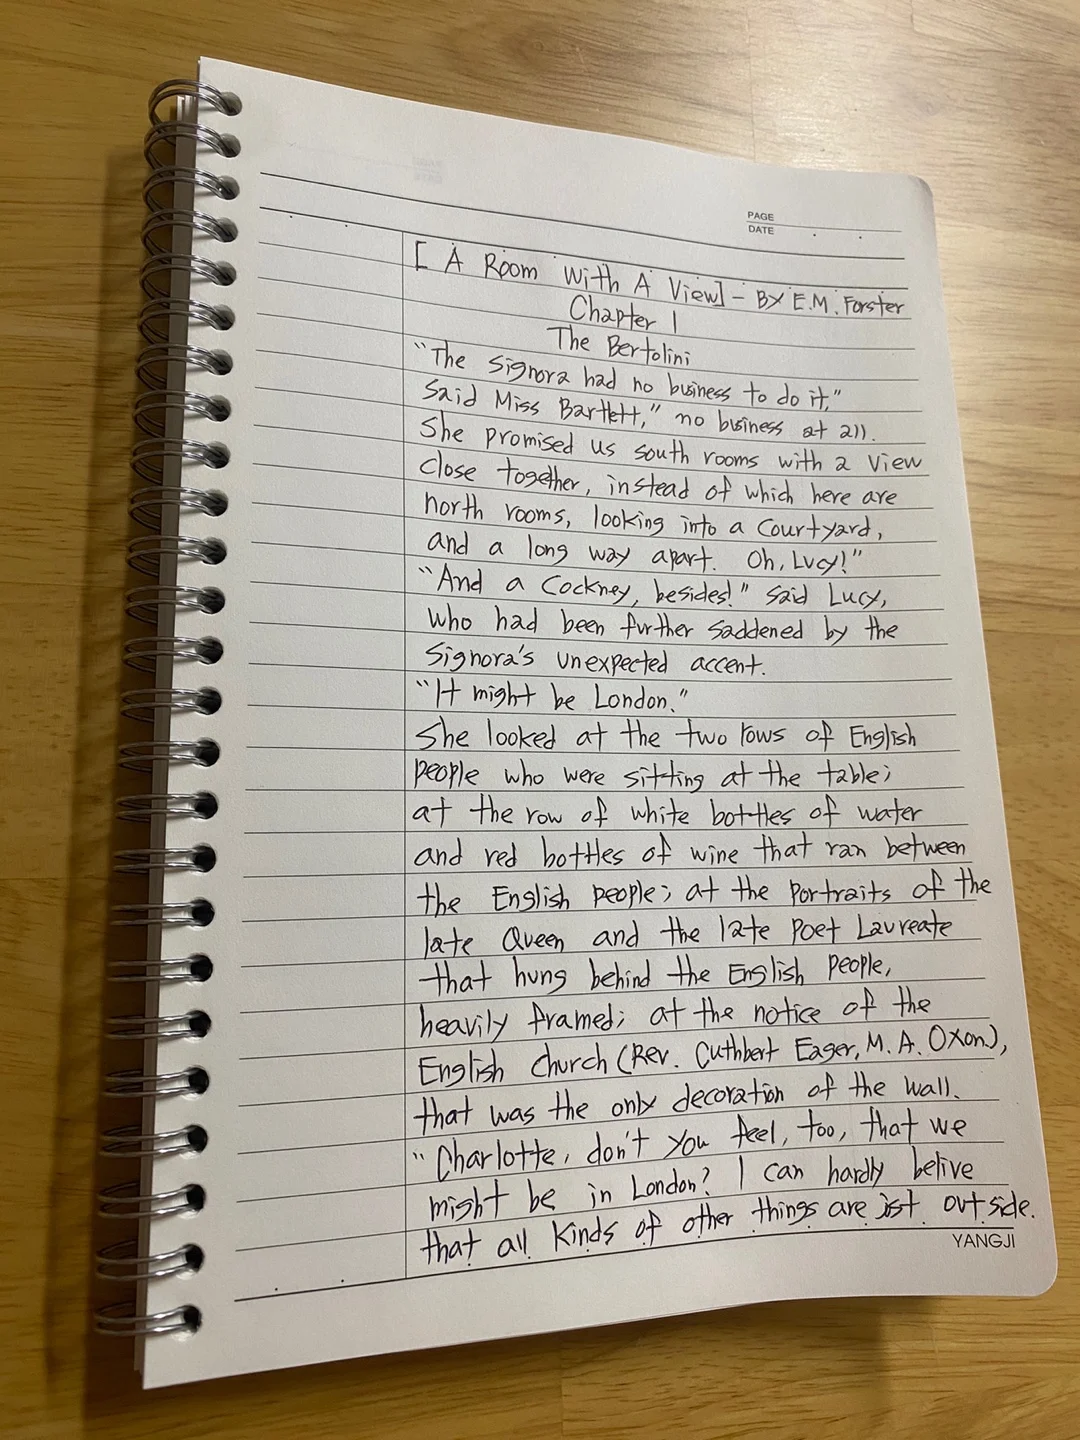 PAGE
DATE
[ A Room With A View] - BY E.M. Forster
Chapter 1
The Bertolini
"The Signora had no business to do it,"
said Miss Bartlett," no business at all.
She promised us south rooms with a view
close together, instead of which here are
north rooms, looking into a courtyard,
and a long way apart. Oh, Lucy!"
"And a Cockney, besides!" said Lucy,
who had been further saddened by the
Signora's unexpected accent.
"It might be London."
She looked at the two rows of English
people who were sitting at the table;
at the row of white bottles of water
and red bottles of wine that ran between
the English people; at the portraits of the
late Queen and the late Poet Laureate
that hung behind the English people,
heavily framed; at the notice of the
English church (Rev. Cuthbert Eager, M. A. Oxon.),
that was the only decoration of the wall.
"Charlotte, don't you feel, too, that we
might be in London? I can hardly belive
that all kinds of other things are jst outside.
YANGJI